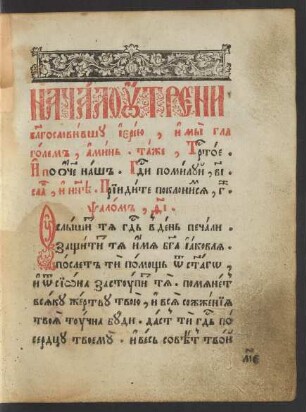 НАЧА́ЛО ОУ҆́ТРЕНИ
Бл҃гослови́вшу і҆ере́ю , и҆ мы̀ гла
го́лемъ , а҆ми́нь . та́же , Трⷭ҇то́е .
И҆ по ѻ҆́ч҃е на́шъ . Гдⷭ҇и поми́луй , в҃і .
сла́ , и҆ ны́нѣ . Прїиди́те поклони́мсѧ , г҃ .
ѱало́мъ , ѳ҃і .
Оу҆слы́шитъ тѧ̀ гдⷭ҇ь в де́нь печа́ли .
защи́титъ тѧ̀ и҆́мѧ бг҃а і҆а́ковлѧ .
по́слетъ ти по́мощь ѿ ст҃а́гѡ ,
и҆ ѿ сїѡ́на засту́питъ тѧ̀ . помѧне́тъ
всѧ́ку же́ртву твою̀ , и҆ всѧ̀ сожже́нїѧ
твоѧ̀ ту́чна бу́ди . да́стъ ти гдⷭ҇ь по
се́рдцу твоему̀ . и҆ ве́сь совѣ́тъ тво́й